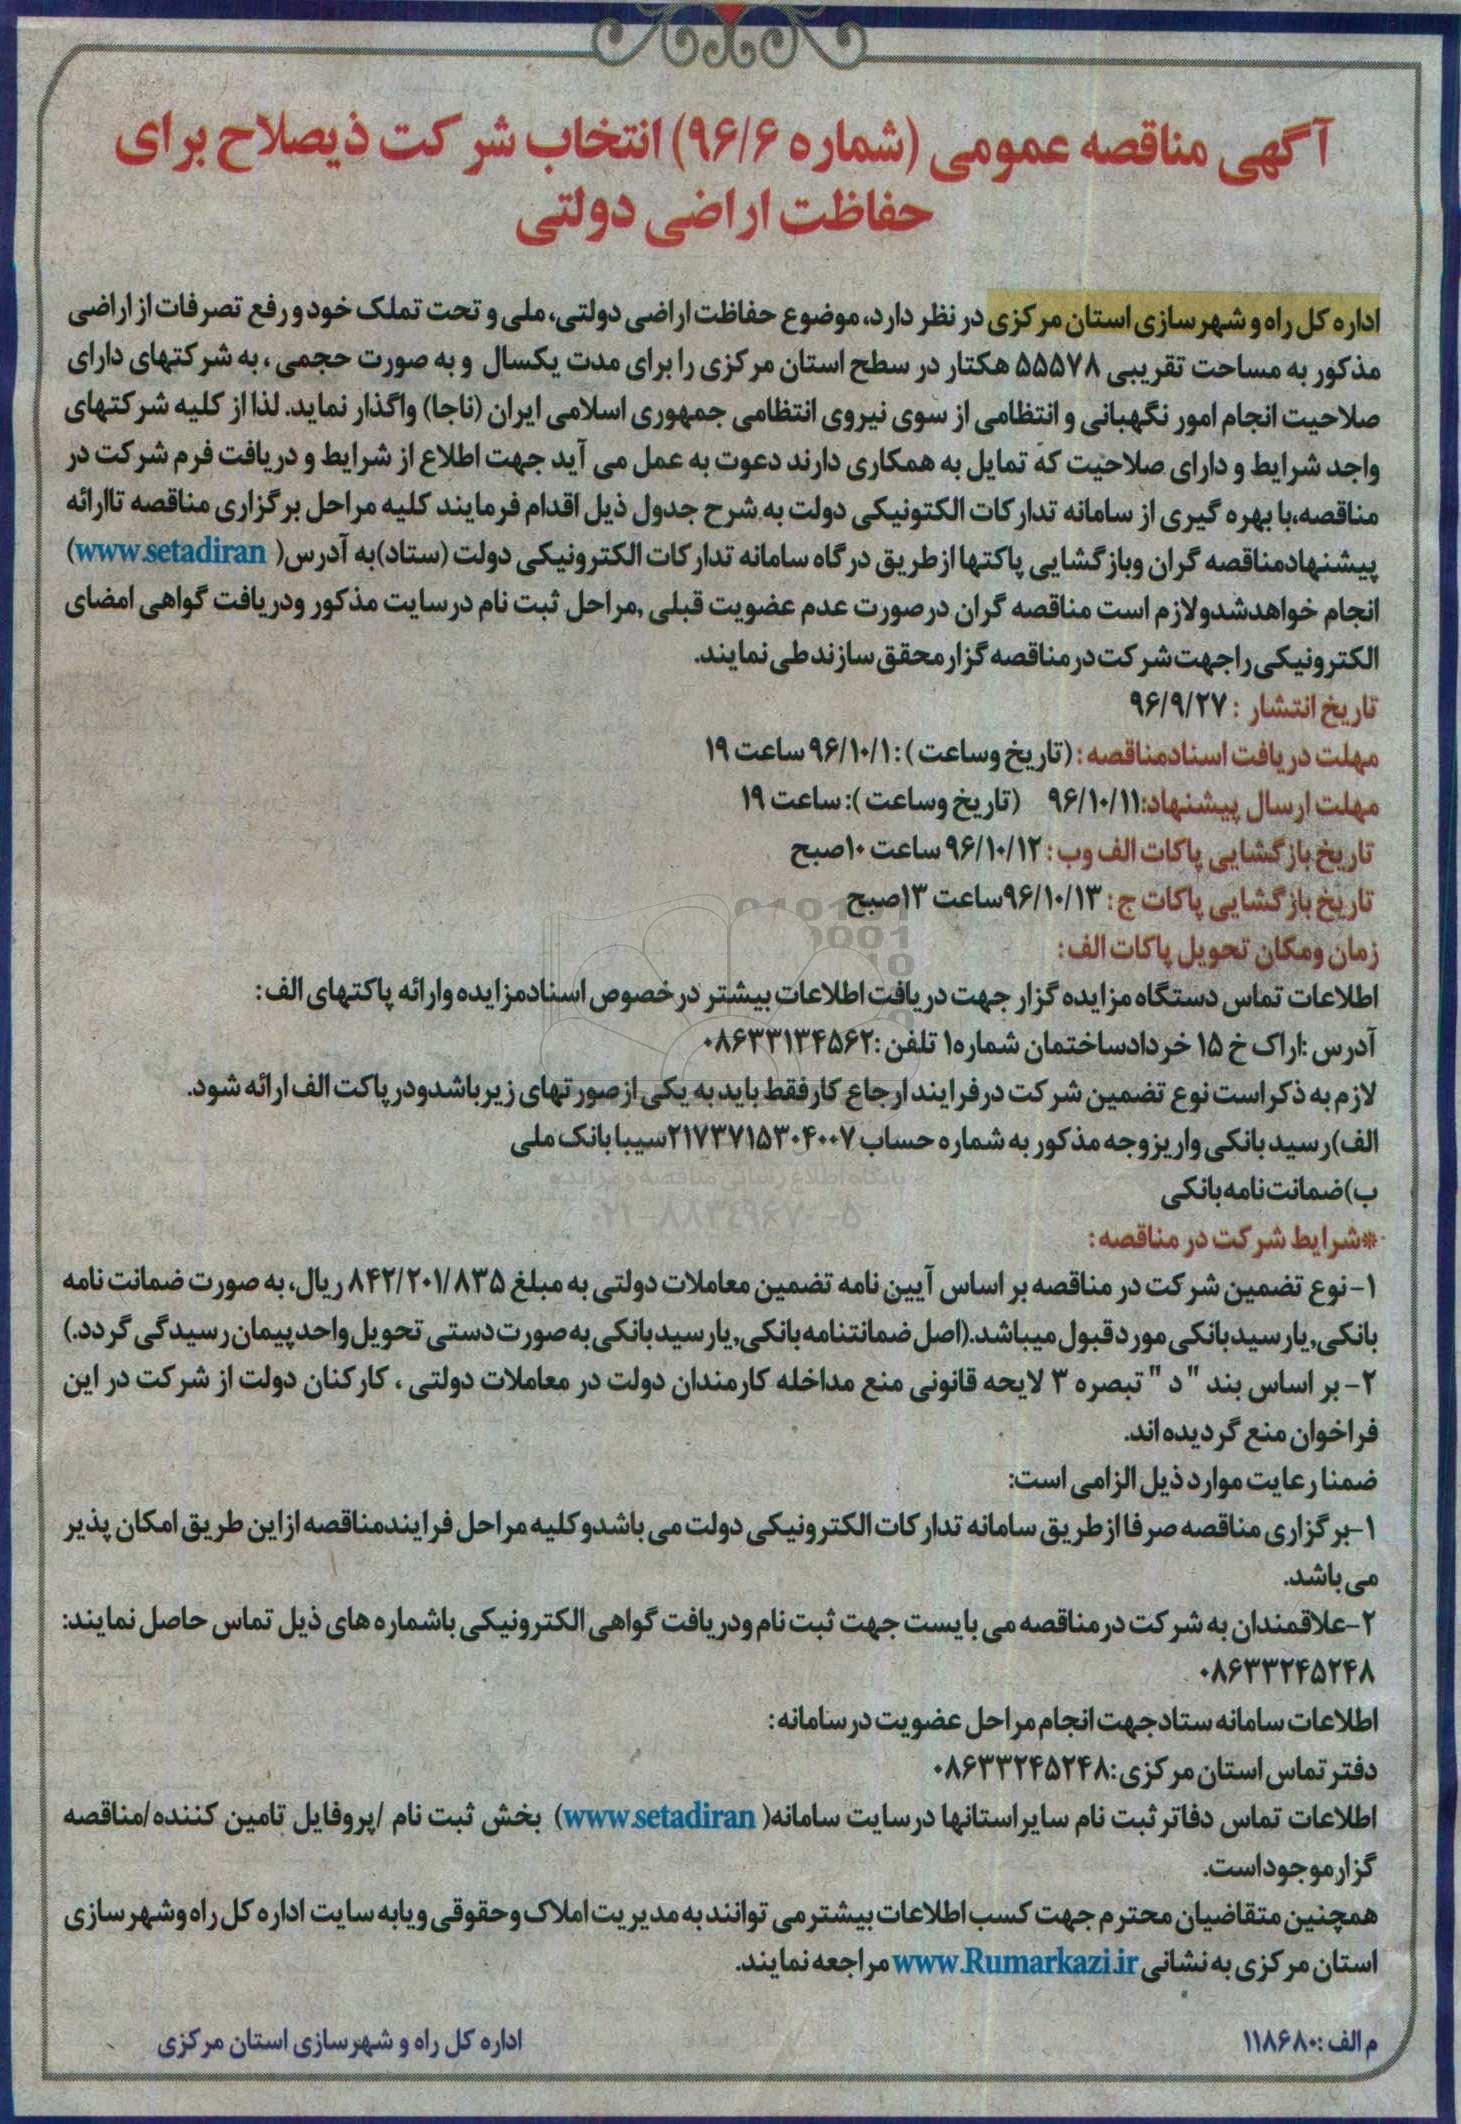 آگهی مناقصه عمومی (شماره ۹۶/۶) انتخاب شرکت ذیصلاح برای
حفاظت اراضی دولتی
اداره کل راه و شهرسازی استان مرکزی در نظر دارد، موضوع حفاظت اراضی دولتی، ملی و تحت تملک خود و رفع تصرفات از اراضی
مذکور به مساحت تقریبی ۵۵۵۷۸ هکتار در سطح استان مرکزی را برای مدت یکسال و به صورت حجمی ، به شرکتهای دارای
صلاحیت انجام امور نگهبانی و انتظامی از سوی نیروی انتظامی جمهوری اسلامی ایران (ناجا) واگذار نماید. لذا از کلیه شرکتهای
واجد شرایط و دارای صلاحیت که تمایل به همکاری دارند دعوت به عمل می آید جهت اطلاع از شرایط و دریافت فرم شرکت در
مناقصه،با بهره گیری از سامانه تدارکات الکتونیکی دولت به شرح جدول ذیل اقدام فرمایند کلیه مراحل برگزاری مناقصه تاارائه
پیشنهادمناقصه گران وبازگشایی پاکتها ازطریق درگاه سامانه تدارکات الکترونیکی دولت (ستاد)به آدرس( www.setadiran)
انجام خواهدشدولازم است مناقصه گران درصورت عدم عضویت قبلی ,مراحل ثبت نام درسایت مذکور ودریافت گواهی امضای
الکترونیکی راجهت شرکت درمناقصه گزارمحقق سازندطی نمایند.
تاریخ انتشار : ۹۶/۹/۲۷
مهلت دریافت اسنادمناقصه : (تاریخ وساعت ) :۹۶/۱۰/۱ ساعت ۱۹
مهلت ارسال پیشنهاد:۹۶/۱۰/۱۱ (تاریخ وساعت ): ساعت ۱۹
تاریخ بازگشایی پاکات الف وب : ۹۶/۱۰/۱۲ ساعت ۱۰صبح
تاریخ بازگشایی پاکات ج : ۹۶/۱۰/۱۳ساعت ۱۳صبح
زمان ومکان تحویل پاکات الف :
اطلاعات تماس دستگاه مزایده گزار جهت دریافت اطلاعات بیشتر درخصوص اسنادمزایده وارائه پاکتهای الف :
آدرس :اراک خ ۱۵ خردادساختمان شماره۱ تلفن :۰۸۶۳۳۱۳۴۵۶۲
لازم به ذکراست نوع تضمین شرکت درفرایند ارجاع کارفقط باید به یکی ازصورتهای زیرباشدودرپاکت الف ارائه شود.
الف)رسید بانکی واریزوجه مذکور به شماره حساب ۲۱۷۳۷۱۵۳۰۴۰۰۷سیبا بانک ملی
پایگاه اطلاع رسانی مناقصه و مزایده
ب)ضمانت نامه بانکی
۰۲۱-۸۸۳۴۹۶۷۰-۵
*شرایط شرکت در مناقصه :
۱- نوع تضمین شرکت در مناقصه بر اساس آیین نامه تضمین معاملات دولتی به مبلغ ۸۴۲/۲۰۱/۸۳۵ ریال، به صورت ضمانت نامه
بانکی,یارسیدبانکی موردقبول میباشد.(اصل ضمانتنامه بانکی,یارسیدبانکی به صورت دستی تحویل واحدپیمان رسیدگی گردد.)
۲- بر اساس بند "د " تبصره ۳ لایحه قانونی منع مداخله کارمندان دولت در معاملات دولتی ، کارکنان دولت از شرکت در این
فراخوان منع گردیده اند.
ضمنا رعایت موارد ذیل الزامی است:
۱-برگزاری مناقصه صرفا ازطریق سامانه تدارکات الکترونیکی دولت می باشدوکلیه مراحل فرایندمناقصه ازاین طریق امکان پذیر
می باشد.
۲-علاقمندان به شرکت درمناقصه می بایست جهت ثبت نام ودریافت گواهی الکترونیکی باشماره های ذیل تماس حاصل نمایند:
۰۸۶۳۳۲۴۵۲۴۸
اطلاعات سامانه ستادجهت انجام مراحل عضویت درسامانه :
دفتر تماس استان مرکزی :۰۸۶۳۳۲۴۵۲۴۸
اطلاعات تماس دفاتر ثبت نام سایر استانها درسایت سامانه( www.setadiran) بخش ثبت نام /پروفایل تامین کننده/مناقصه
گزارموجوداست.
همچنین متقاضیان محترم جهت کسب اطلاعات بیشترمی توانند به مدیریت املاک وحقوقی ویابه سایت اداره کل راه وشهرسازی
استان مرکزی به نشانی www.Rumarkazi.ir مراجعه نمایند.
م الف :۱۱۸۶۸۰
اداره کل راه و شهرسازی استان مرکزی